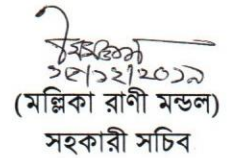 ১৫/১২/২০১৯
(মল্লিকা রাণী মন্ডল)
সহকারী সচিব